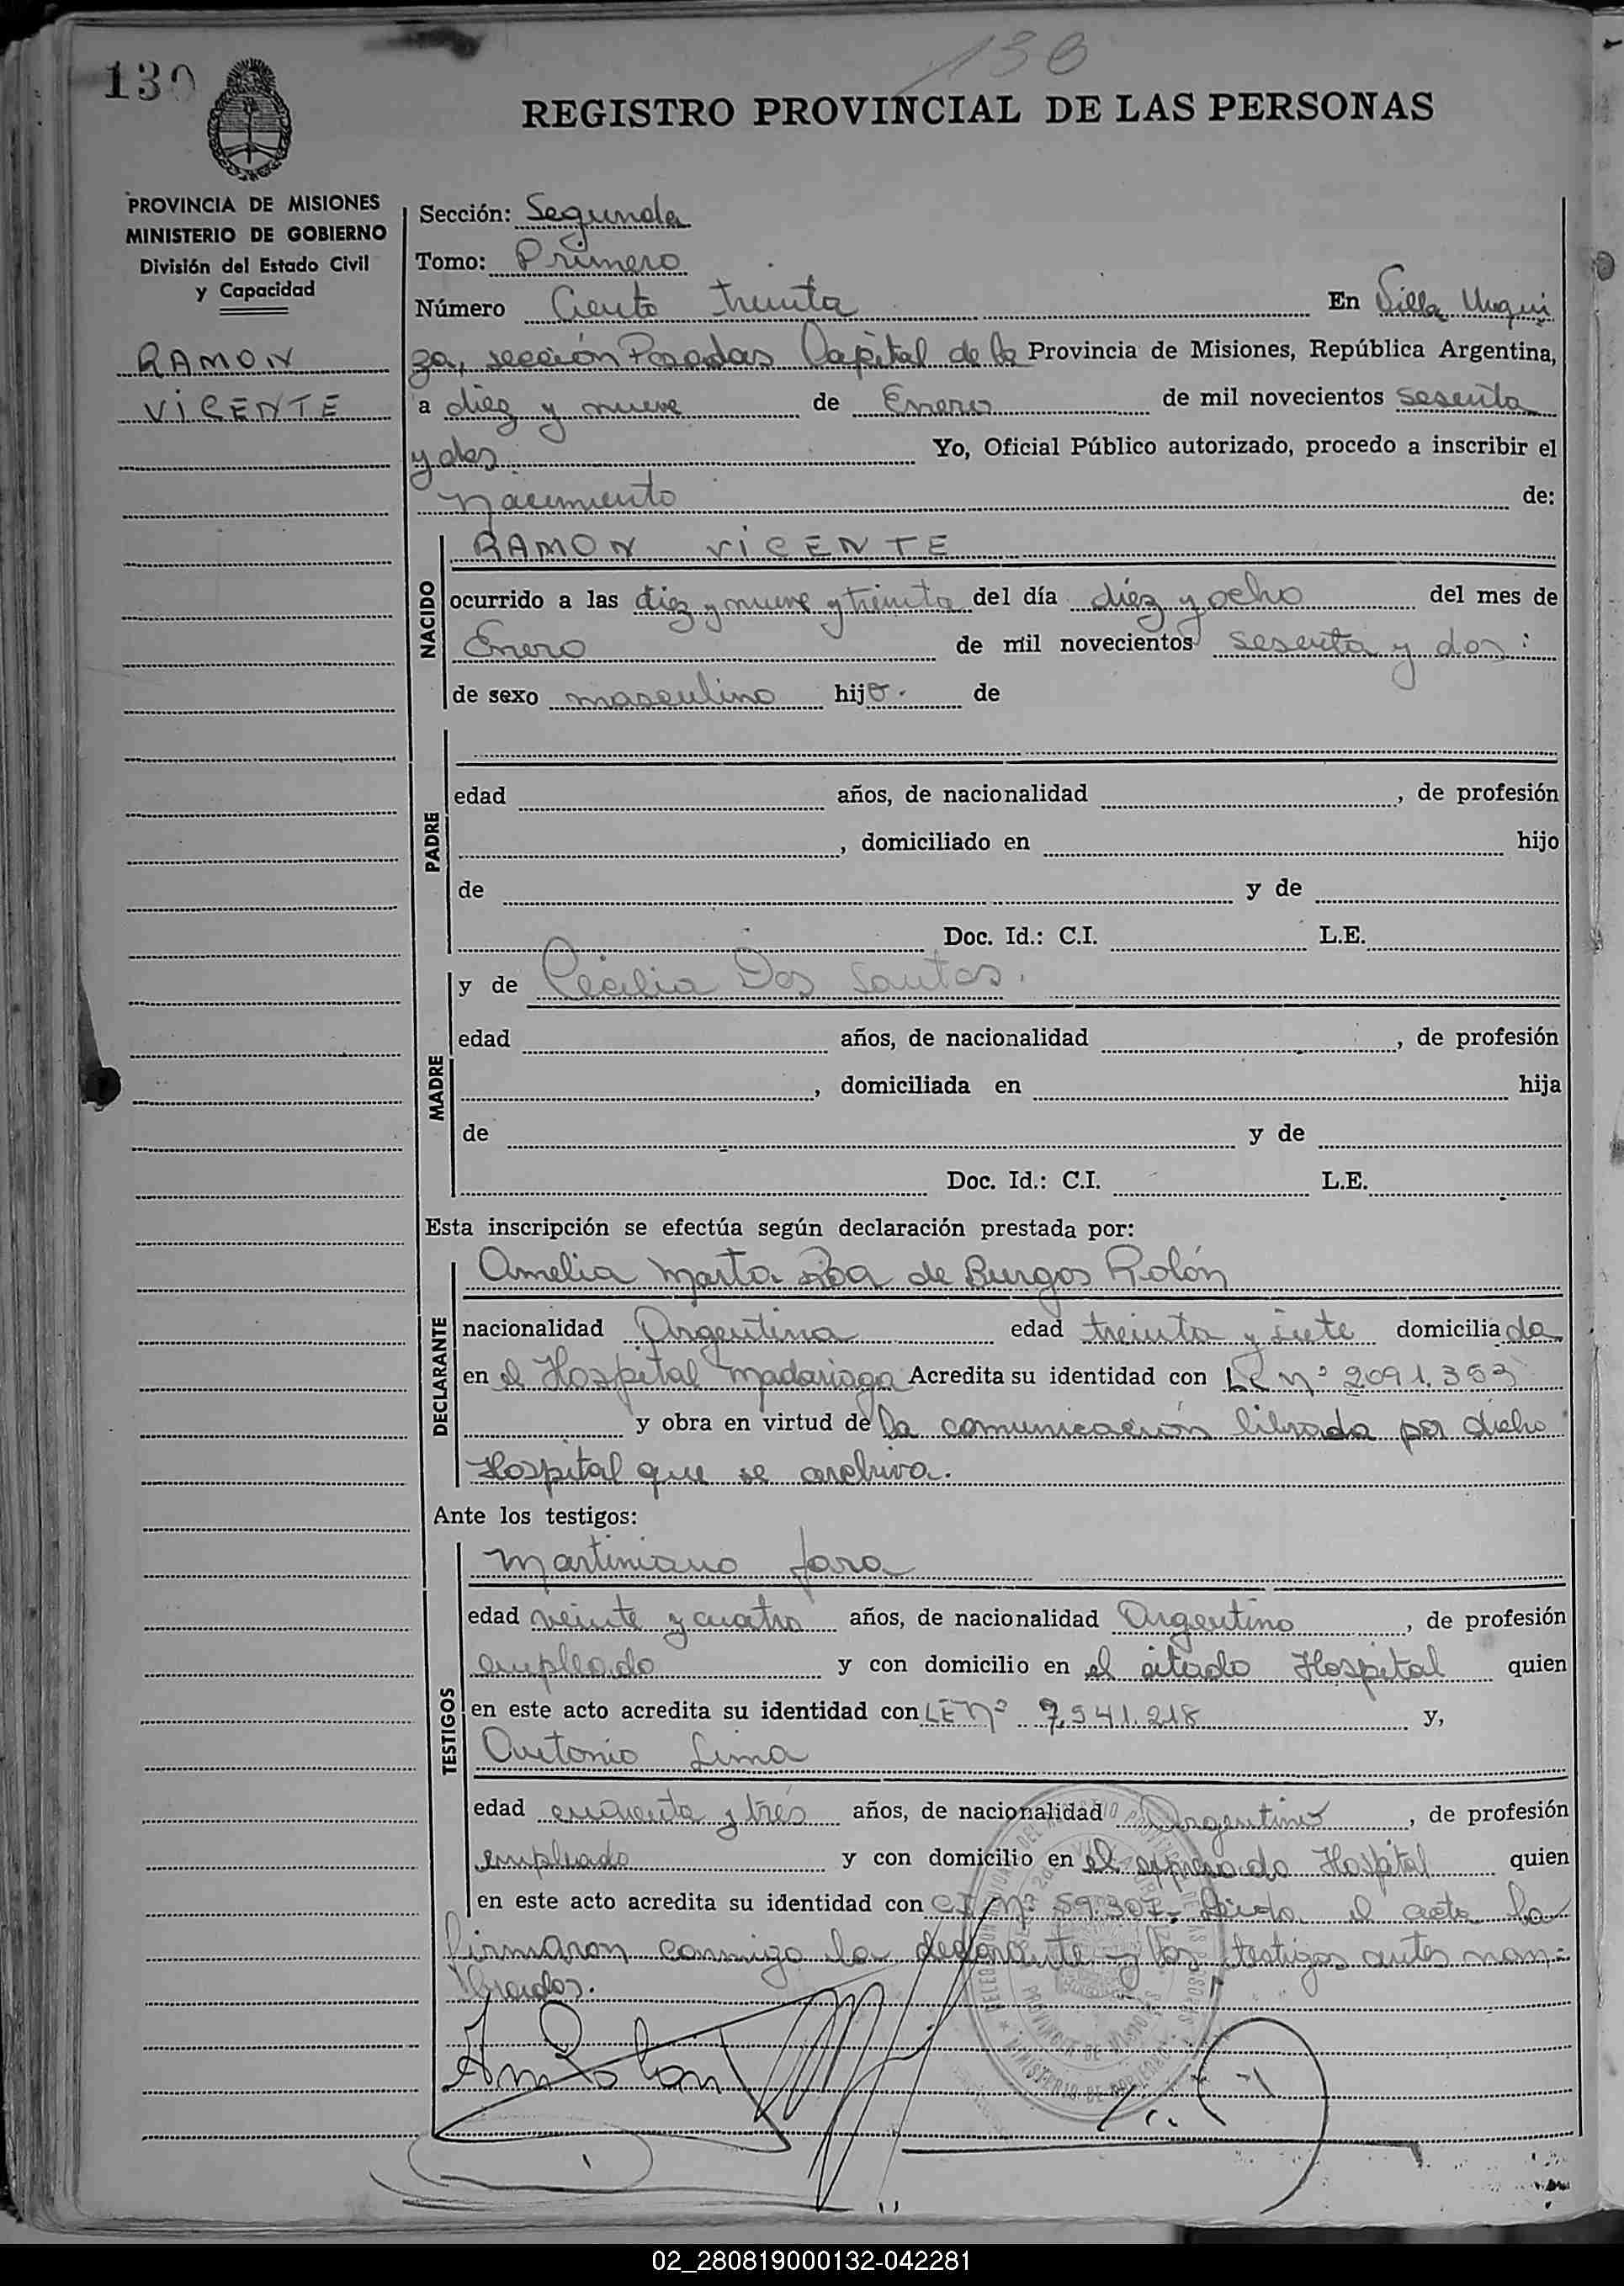 130
130
REGISTRO PROVINCIAL DE LAS PERSONAS
PROVINCIA DE MISIONES
MINISTERIO DE GOBIERNO
División del Estado Civil
y Capacidad
RAMON
VICENTE
Sección: Segunda
Tomo: Primero
Número Ciento treinta En Villa Urqui
za, sección Posadas Capital de la Provincia de Misiones, República Argentina,
a diez y nueve de Enero de mil novecientos sesenta
y dos. Yo, Oficial Público autorizado, procedo a inscribir el
Nacimiento de:
NACIDO
RAMON VICENTE
ocurrido a las diez y nueve y treinta del día diez y ocho del mes de
Enero de mil novecientos sesenta y dos:
de sexo masculino hijo. de
PADRE
edad años, de nacionalidad , de profesión
, domiciliado en hijo
de y de
Doc. Id.: C.I. L.E.
MADRE
y de Cecilia Dos Santos.
edad años, de nacionalidad , de profesión
, domiciliada en hija
de y de
Doc. Id.: C.I. L.E.
Esta inscripción se efectúa según declaración prestada por:
DECLARANTE
Amelia Marta de Burgos Rolón
nacionalidad Argentina edad treinta y siete domiciliada
en el Hospital Madariaga Acredita su identidad con LC Nº 2091.353
y obra en virtud de la comunicación librada por dicho
Hospital que se archiva.
Ante los testigos:
TESTIGOS
Martiniano Jara
edad veinte y cuatro años, de nacionalidad Argentino , de profesión
empleado y con domicilio en el citado Hospital quien
en este acto acredita su identidad con LE Nº 7.541.218 y,
Antonio Lima
edad cuarenta y tres años, de nacionalidad Argentino , de profesión
empleado y con domicilio en el expresado Hospital quien
en este acto acredita su identidad con CI Nº 59.307. Leida el acta la
firmaron conmigo la declarante y los testigos antes nom-
brados.
PROVINCIA DE MISIONES
MINISTERIO DE GOBIERNO
02_280819000132-042281